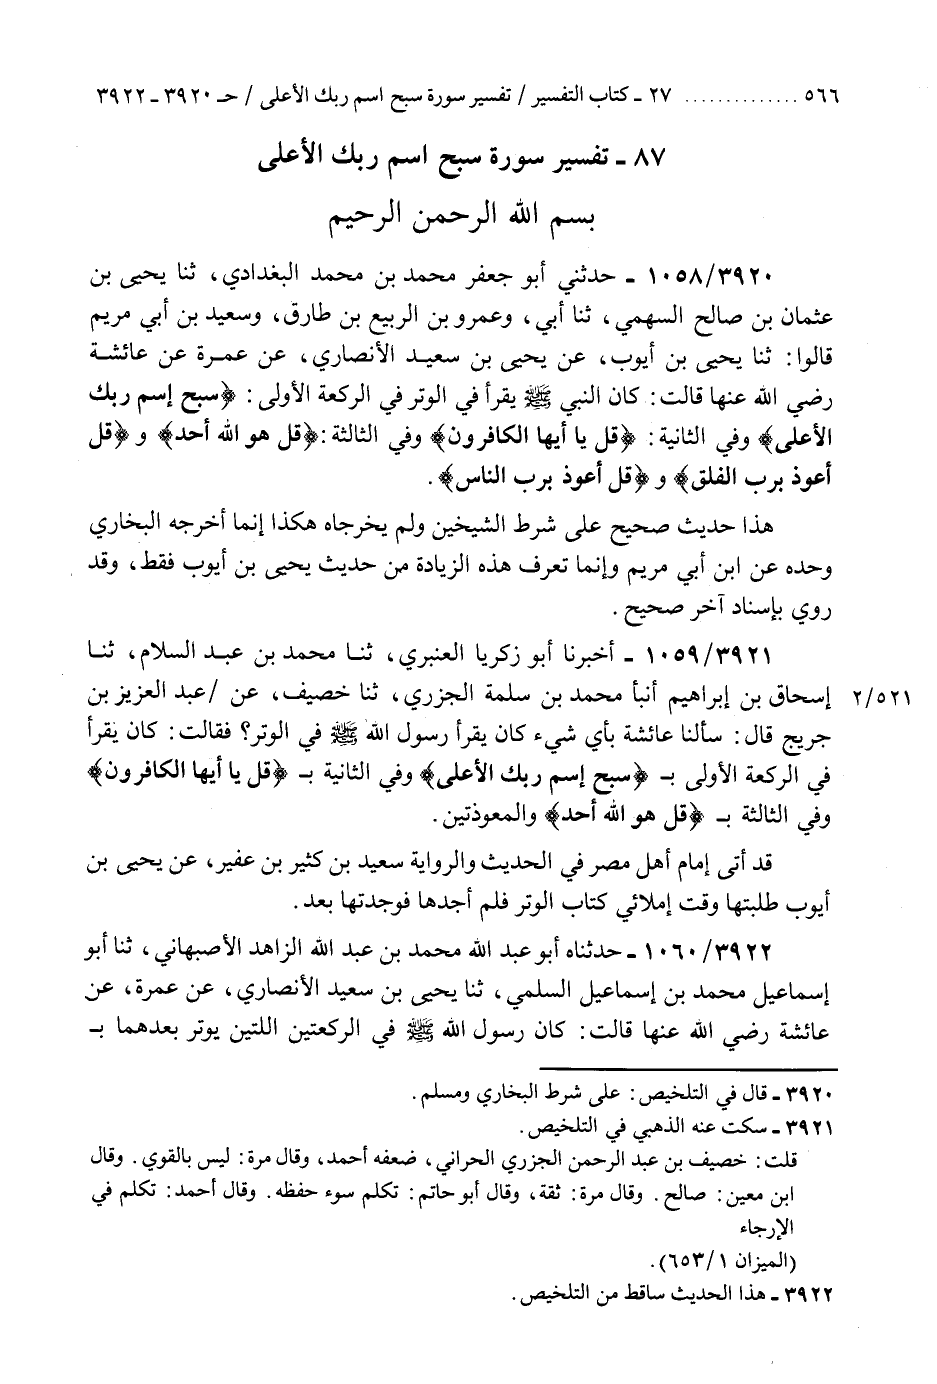 ٥٦٦ .............. ٢٧ ـ كتاب التفسير / تفسير سورة سبح اسم ربك الأعلى / حـ ٣٩٢٠ ـ ٣٩٢٢
٨٧ ـ تفسير سورة سبح اسم ربك الأعلى
بسم الله الرحمن الرحيم
١٠٥٨/٣٩٢٠ ـ حدثني أبو جعفر محمد بن محمد البغدادي، ثنا يحيى بن
عثمان بن صالح السهمي، ثنا أبي، وعمرو بن الربيع بن طارق، وسعيد بن أبي مريم
قالوا: ثنا يحيى بن أيوب، عن يحيى بن سعيد الأنصاري، عن عمرة عن عائشة
رضي الله عنها قالت: كان النبي ﷺ يقرأ في الوتر في الركعة الأولى: ﴿سبح إسم ربك
الأعلى﴾ وفي الثانية: ﴿قل يا أيها الكافرون﴾ وفي الثالثة:﴿قل هو الله أحد﴾ و ﴿قل
أعوذ برب الفلق﴾ و ﴿قل أعوذ برب الناس﴾.
هذا حديث صحيح على شرط الشيخين ولم يخرجاه هكذا إنما أخرجه البخاري
وحده عن ابن أبي مريم وإنما تعرف هذه الزيادة من حديث يحيى بن أيوب فقط، وقد
روي بإسناد آخر صحيح.
١٠٥٩/٣٩٢١ ـ أخبرنا أبو زكريا العنبري، ثنا محمد بن عبد السلام، ثنا
إسحاق بن إبراهيم أنبأ محمد بن سلمة الجزري، ثنا خصيف، عن /عبد العزيز بن ٢/٥٢١
جريج قال: سألنا عائشة بأي شيء كان يقرأ رسول الله ﷺ في الوتر؟ فقالت: كان يقرأ
في الركعة الأولى بـ ﴿سبح إسم ربك الأعلى﴾ وفي الثانية بـ ﴿قل يا أيها الكافرون﴾
وفي الثالثة بـ ﴿قل هو الله أحد﴾ والمعوذتين.
قد أتى إمام أهل مصر في الحديث والرواية سعيد بن كثير بن عفير، عن يحيى بن
أيوب طلبتها وقت إملائي كتاب الوتر فلم أجدها فوجدتها بعد.
١٠٦٠/٣٩٢٢ ـ حدثناه أبو عبد الله محمد بن عبد الله الزاهد الأصبهاني، ثنا أبو
إسماعيل محمد بن إسماعيل السلمي، ثنا يحيى بن سعيد الأنصاري، عن عمرة، عن
عائشة رضي الله عنها قالت: كان رسول الله ﷺ في الركعتين اللتين يوتر بعدهما بـ
٣٩٢٠ ـ قال في التلخيص: على شرط البخاري ومسلم.
٣٩٢١ ـ سكت عنه الذهبي في التلخيص.
قلت: خصيف بن عبد الرحمن الجزري الحراني، ضعفه أحمد، وقال مرة: ليس بالقوي. وقال
ابن معين: صالح. وقال مرة: ثقة، وقال أبو حاتم: تكلم سوء حفظه. وقال أحمد: تكلم في
الإرجاء
(الميزان ٦٥٣/١).
٣٩٢٢ ـ هذا الحديث ساقط من التلخيص.